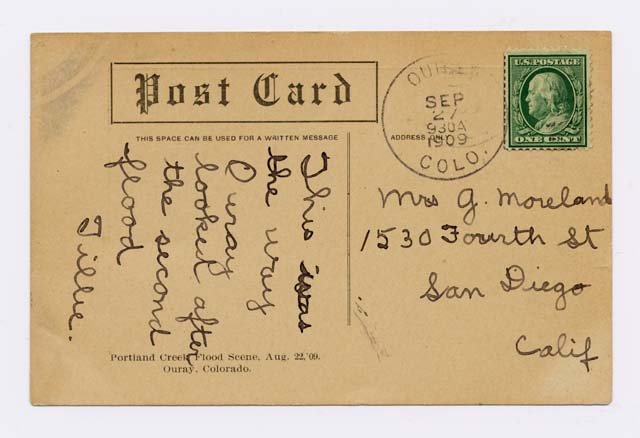 Post Card
THIS SPACE CAN BE USED FOR A WRITTEN MESSAGE
ADDRESS ONLY
SEP
27
930A
1909
COLO.
U.S. POSTAGE
ONE CENT
This was
the way
Ouray
looked after
the second
flood
Tillie.
Mrs G. Moreland
1530 Fourth St
San Diego
Calif
Portland Creek Flood Scene, Aug. 22,'09.
Ouray, Colorado.